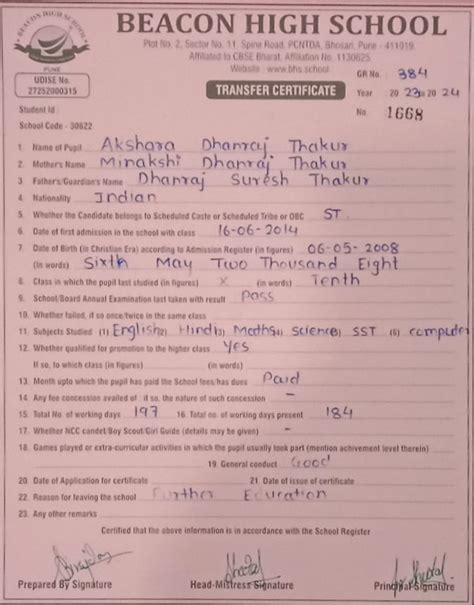 BEACON HIGH SCHOOL
BEACON HIGH SCHOOL
PUNE
Plot No. 2, Sector No. 11, Spine Road, PCNTDA, Bhosari, Pune - 411019.
Affiliated to CBSE Bharat, Affiliation No. 1130625
Website : www.bhs.school
UDISE No.
27252000315
TRANSFER CERTIFICATE
GR No. : 384
Year 20 23 20 24
No. 1668
Student Id :
School Code - 30622
1. Name of Pupil Akshara Dhanraj Thakur
2. Mothers Name Minakshi Dhanraj Thakur
3. Father's/Guardian's Name Dhanraj Suresh Thakur
4. Nationality Indian
5. Whether the Candidate belongs to Scheduled Caste or Scheduled Tribe or OBC ST.
6. Date of first admission in the school with class 16-06-2014
7. Date of Birth (in Christian Era) according to Admission Register (in figures) 06-05-2008
(in Words) Sixth May Two Thousand Eight
8. Class in which the pupil last studied (in figures) X (in words) Tenth
9. School/Board Annual Examination last taken with result Pass
10. Whether failed, if so once/twice in the same class
11. Subjects Studied (1) English (2) Hindi (3) Maths (4) Science (5) SST (6) computer
12. Whether qualified for promotion to the higher class Yes
If so, to which class (in figures) (in words)
13. Month upto which the pupil has paid the School fees/has dues Paid
14. Any fee concession availed of : it so, the nature of such concession -
15. Total No of working days 197 16. Total no. of working days present 184
17. Whether NCC candet/Boy Scout/Girl Guide (details may be given) -
18. Games played or extra-curricular activities in which the pupil usually took part (mention achivement level therein)
19. General conduct Good
20. Date of Application for certificate 21. Date of issue of certificate
22. Reason for leaving the school Further Education
23. Any other remarks
Certified that the above information is in accordance with the School Register
Prepared By Signature Head-Mistress Signature Principal Signature